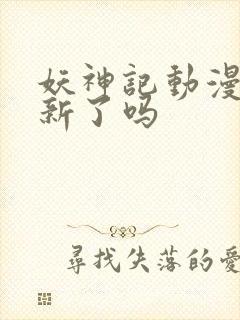 妖神記動漫
新了吗
尋找失落的愛